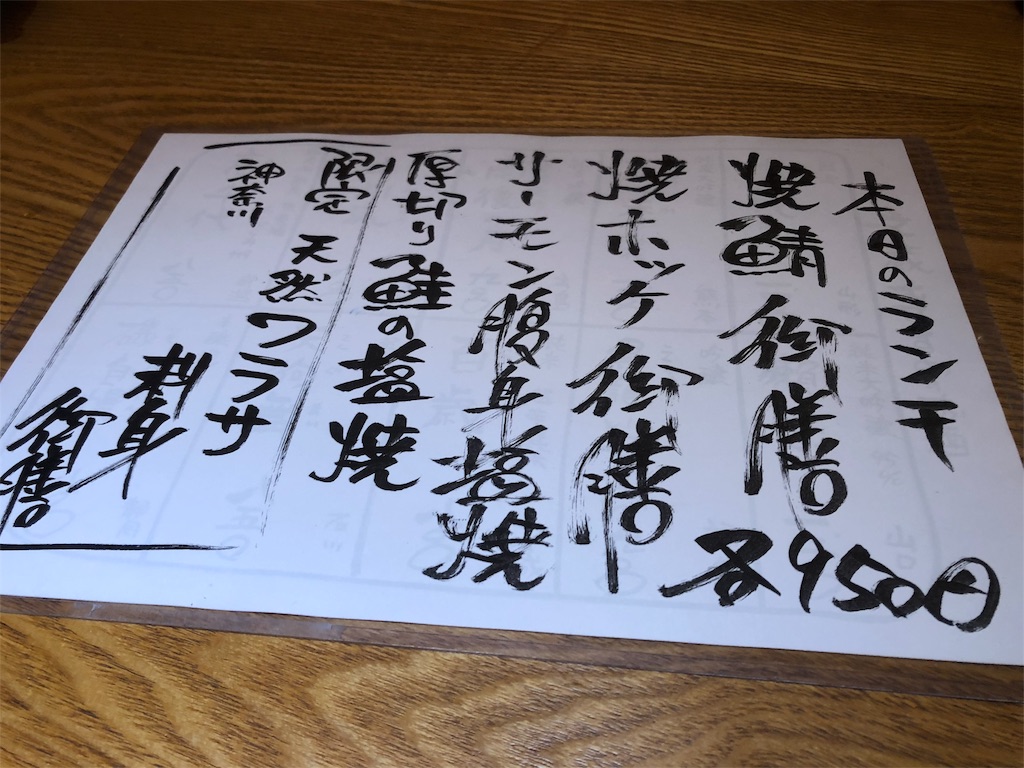 本日のランチ
焼鯖御膳
各950円
焼ホッケ御膳
サーモン腹身塩焼
厚切り鮭の塩焼
限定
神奈川
天然ワラサ
刺身
御膳